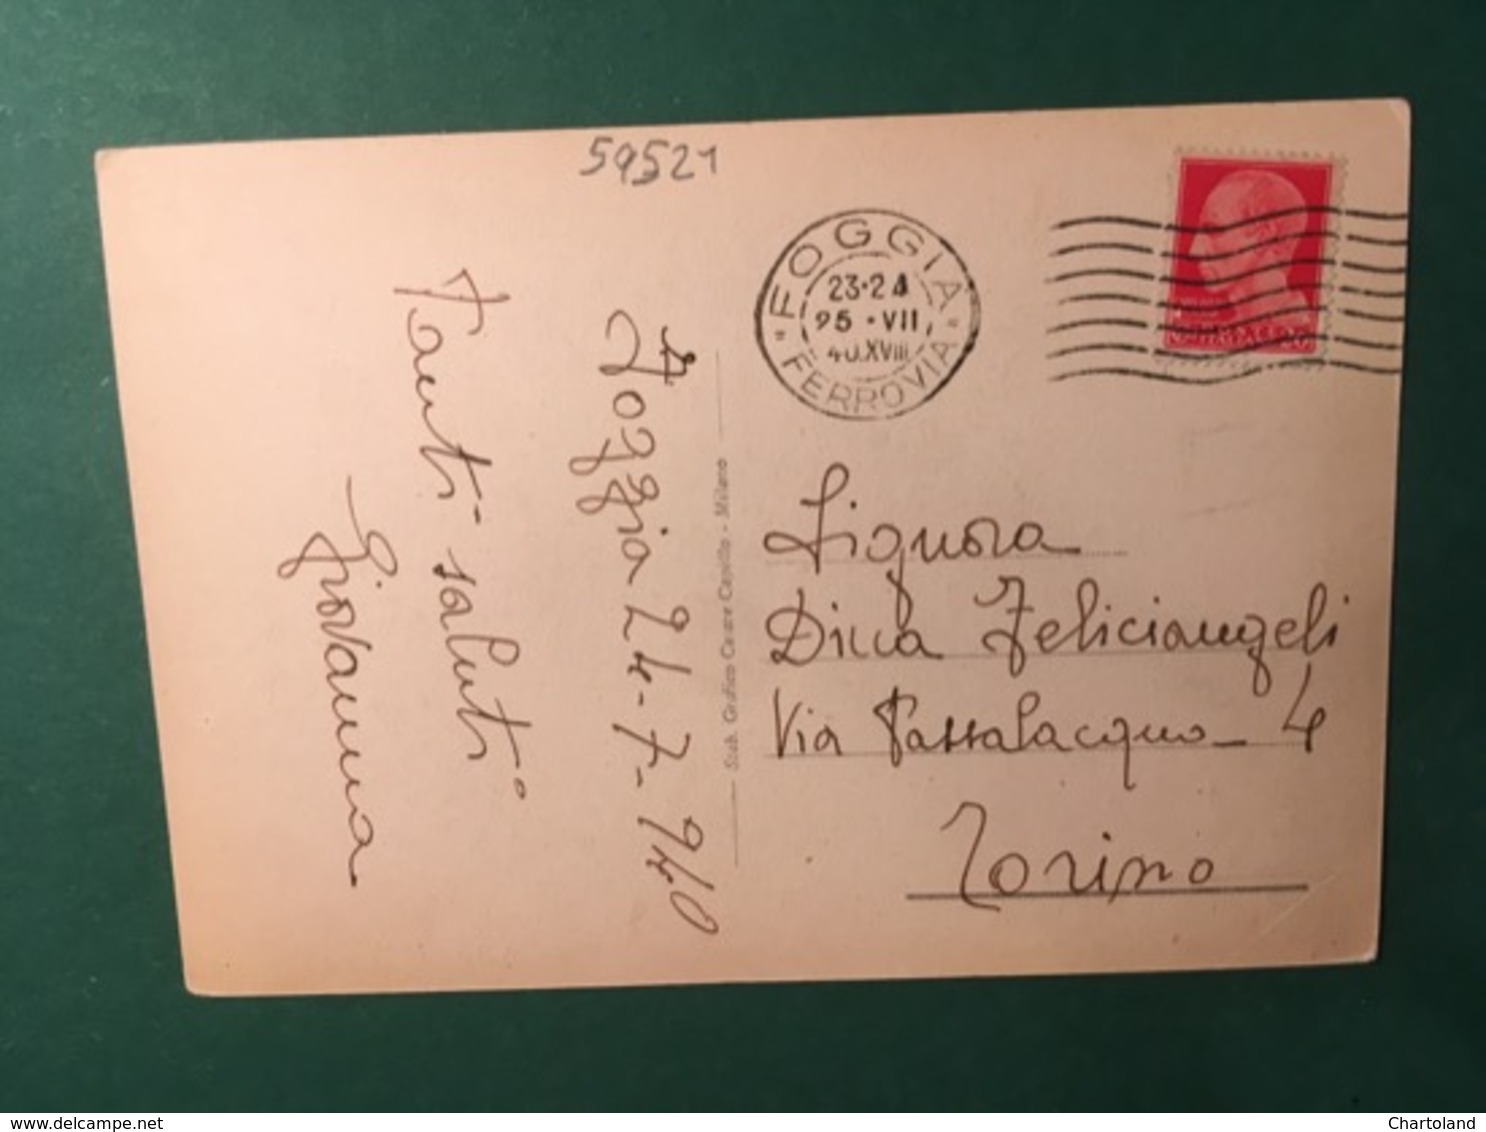 59521
FOGGIA
23·24
25·VII
40.XVIII
FERROVIA
Foggia 24-7-940
Tanti saluti
Giovanna
Stab. Grafico Cesare Capello - Milano
Signora
Dina Feliciangeli
Via Passalacqua - 4
Torino
www.delcampe.net
Chartoland